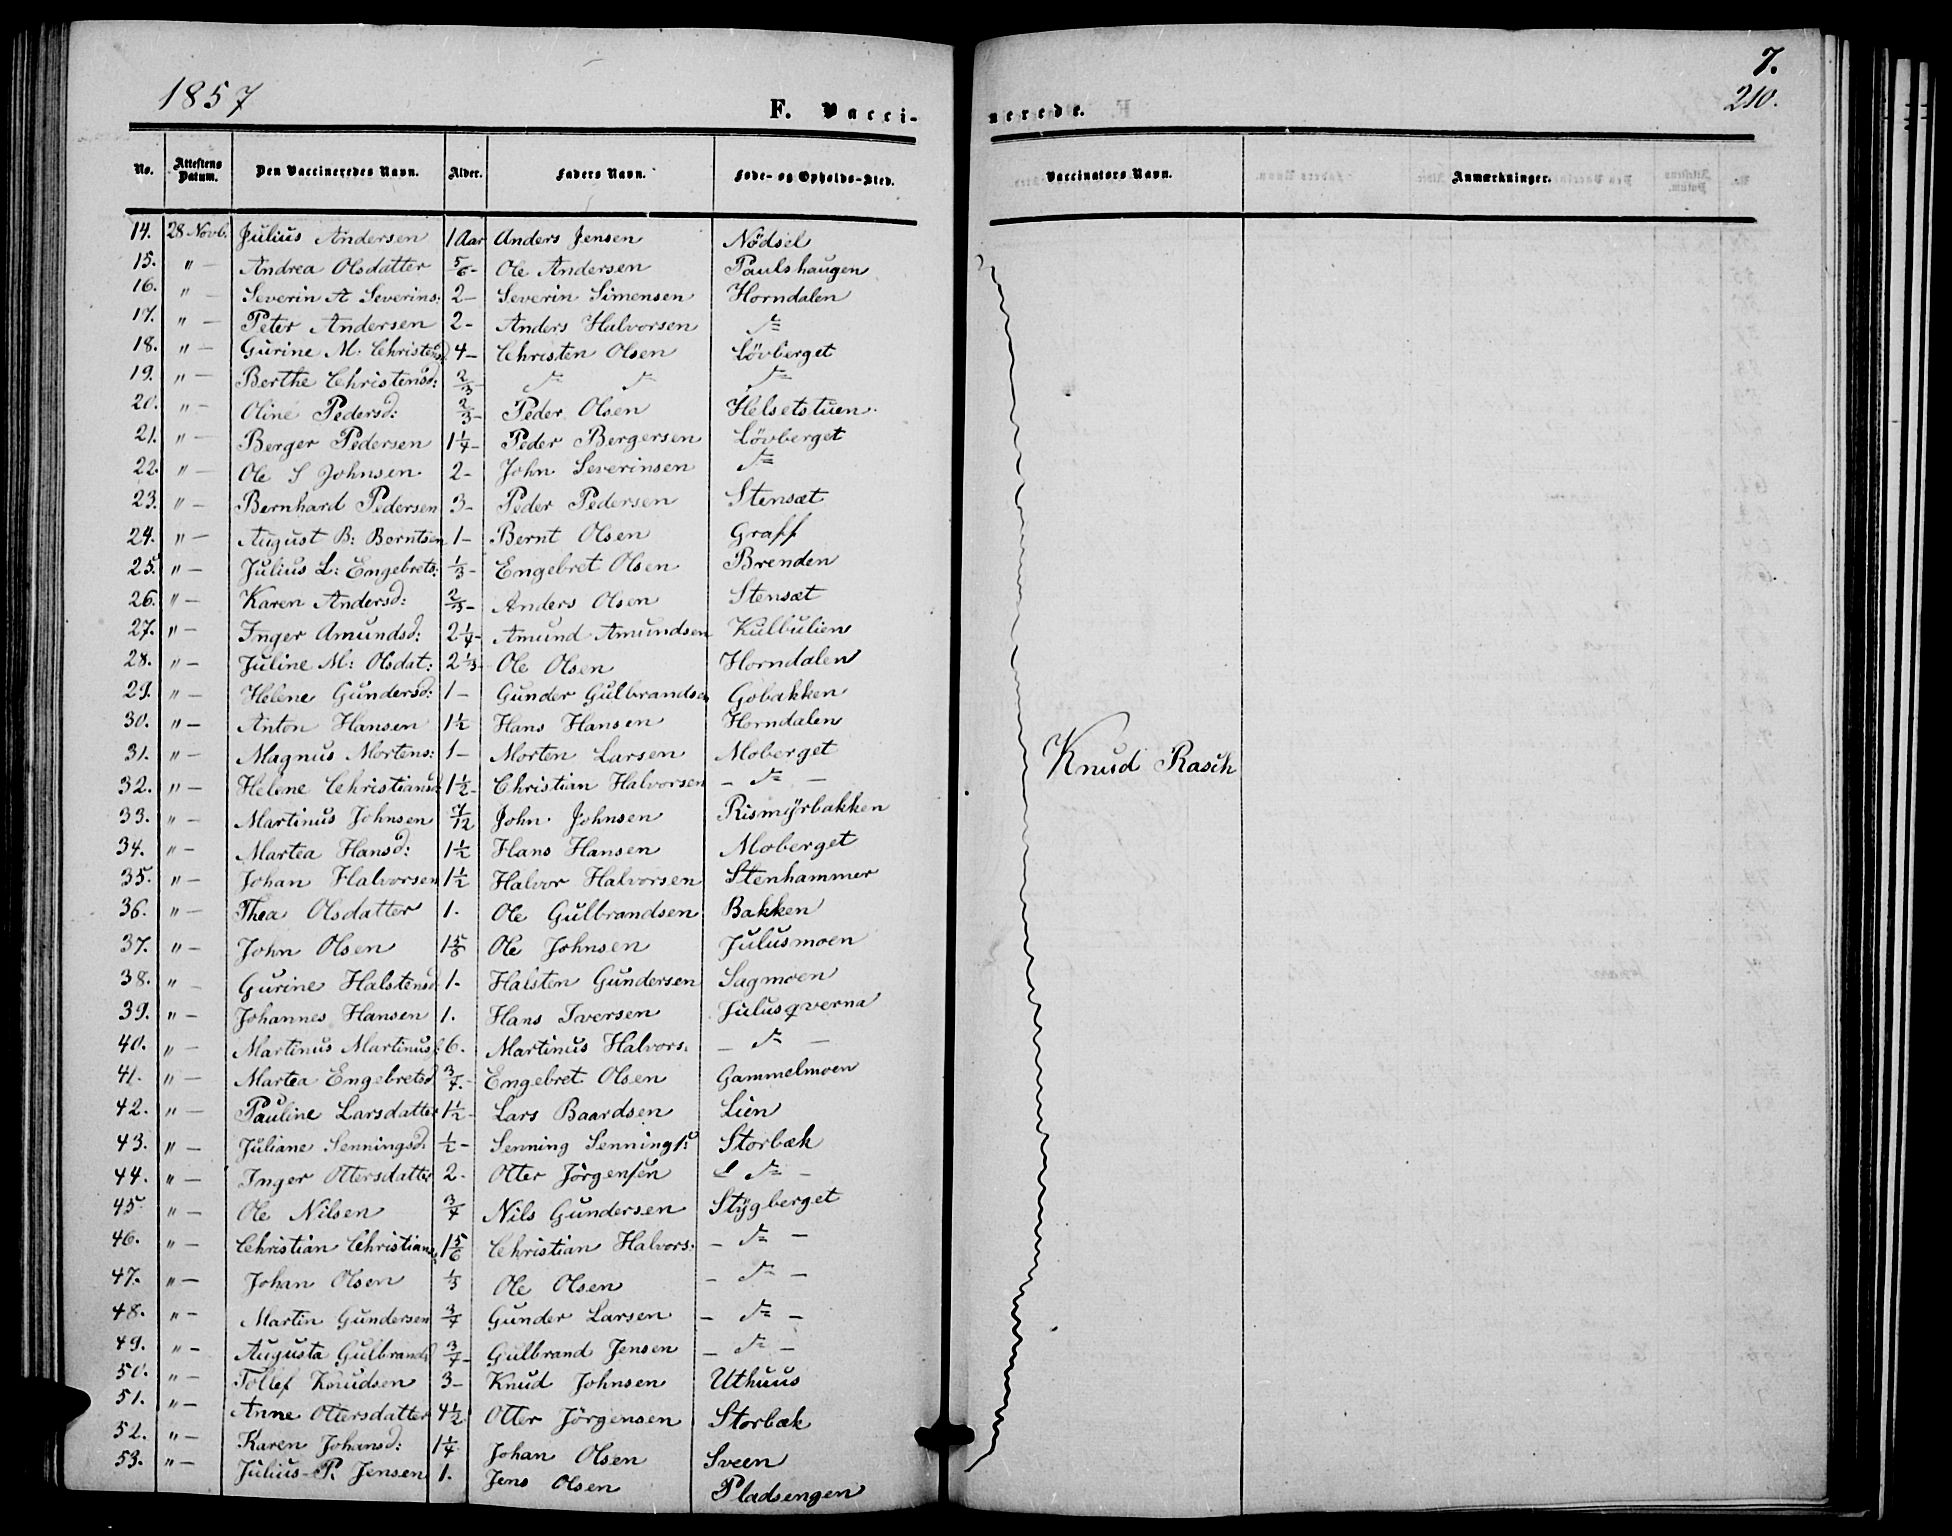 1857
F. Vacci-
No. Attestens Datum. Den Vaccineredes Navn. Alder. Faders Navn. Føde- og Opholds-Sted.
14. 28 Novb. Julius Andersen 1 Aar Anders Jensen Nödsel
15. " — Andrea Olsdatter 5/6 - Ole Andersen Paulshaugen
16. " — Severin A Severins: 2 - Severin Simensen Horndalen
17. " — Peter Andersen 2 - Anders Halvorsen
18. " — Gurine M: Christensd 4 - Christen Olsen Lövberget
19. " — Berthe Christensd: 2/3 -
20. " — Oline Pedersd: 2/3 - Peder Olsen Helsetstuen
21. " — Berger Pedersen 1 1/4 - Peder Bergersen Lövberget
22. " — Ole S Johnsen 2 - John Severinsen
23. " — Bernhard Pedersen 3 - Peder Pedersen Stensæt
24. " — August B: Berntsen 1 - Bernt Olsen Graff
25. " — Julius L: Engebrets: 1/3 - Engebret Olsen Brenden
26. " — Karen Andersd: 2/3 - Anders Olsen Stensæt
27. " — Inger Amundsd: 2 1/4 - Amund Amundsen Kulbulien
28. " — Juline M: Olsdat: 2 1/3 - Ole Olsen Horndalen
29. " — Helene Gundersd: 1 - Gunder Gulbrandsen Gobakken
30. " — Anton Hansen 1 1/2 Hans Hansen Horndalen
31. " — Magnus Mortens: 1 - Morten Larsen Moberget
32. " — Helene Christiansd: 1 1/2 - Christian Halvorsen — —
33. " — Martinus Johnsen 7/12 John Johnsen Rismyrbakken
34. " — Martea Hansd: 1 1/2 Hans Hansen Moberget
35. " — Johan Halvorsen 1 1/2 Halvor Halvorsen Stenhammer
36. " — Thea Olsdatter 1. Ole Gulbrandsen Bakken
37. " — John Olsen Ole Johnsen Julusmoen
38. " — Gurine Halstensd 1. Halsten Gundersen Sagmoen
39. " — Johannes Hansen 1. Hans Iversen Julusqverna
40. " — Martinus Martinus: 6. Martinus Halvors: — —
41. " — Martea Engebretsd 3/4. - Engebret Olsen Gammelmoen
42. " — Pauline Larsdatter 1 1/2 - Lars Baardsen Lien
43. " — Juliane Senningsd. 1/2 - Senning Sennings: Storbæk
44. " — Inger Ottersdatter 2. Otter Jörgensen
45. " — Ole Nilsen 3/4 Nils Gundersen Stygberget
46. " — Christian Christians: 1 5/6 Christian Halvors: — —
47. " — Johan Olsen 1/3 Ole Olsen — —
48. " — Martin Gundersen 3/4 Gunder Larsen — —
49. " — Augusta Gulbrandsd 3/4 - Gulbrand Jensen — —
50. " — Tollef Knudsen 3 - Knud Johnsen Uthuus
51. " — Anne Ottersdatter 4 1/2 Otter Jörgensen Storbæk
52. " — Karen Johansd: 1 1/4 Johan Olsen Sveen
53. " — Julius P. Jensen 1. Jens Olsen Pladsengen
7.
210.
nerede.
Vaccinators Navn. Anmærkninger.
Knud Rasch